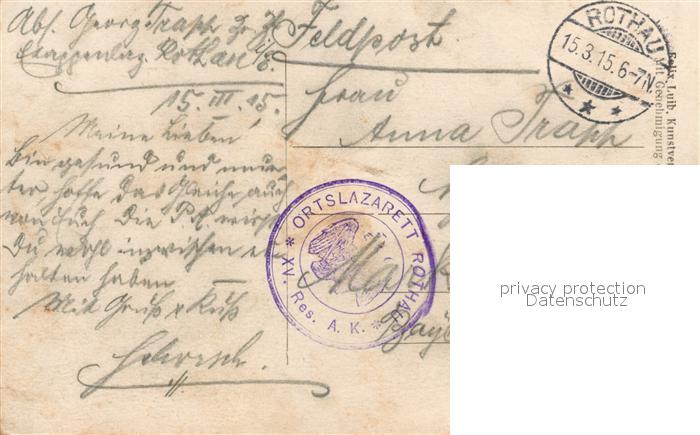 Abs. Georg Trapp
Etappenlaz. Rothau i/E.
15. III. 15.
Meine Lieben!
Bin gesund und mun-
ter hoffe das Gleiche auch
von Euch. Die P. K. wirst
Du wohl inzwischen er-
halten haben.
Mit Gruß & Kuß
Feldpost.
Frau
Anna Trapp
ROTHAU
15.3.15.6-7N
ORTSLAZARETT ROTHAU
XV. Res. A. K.
Felix Luib, Kunstver
Mit Genehmigung
privacy protection
Datenschutz